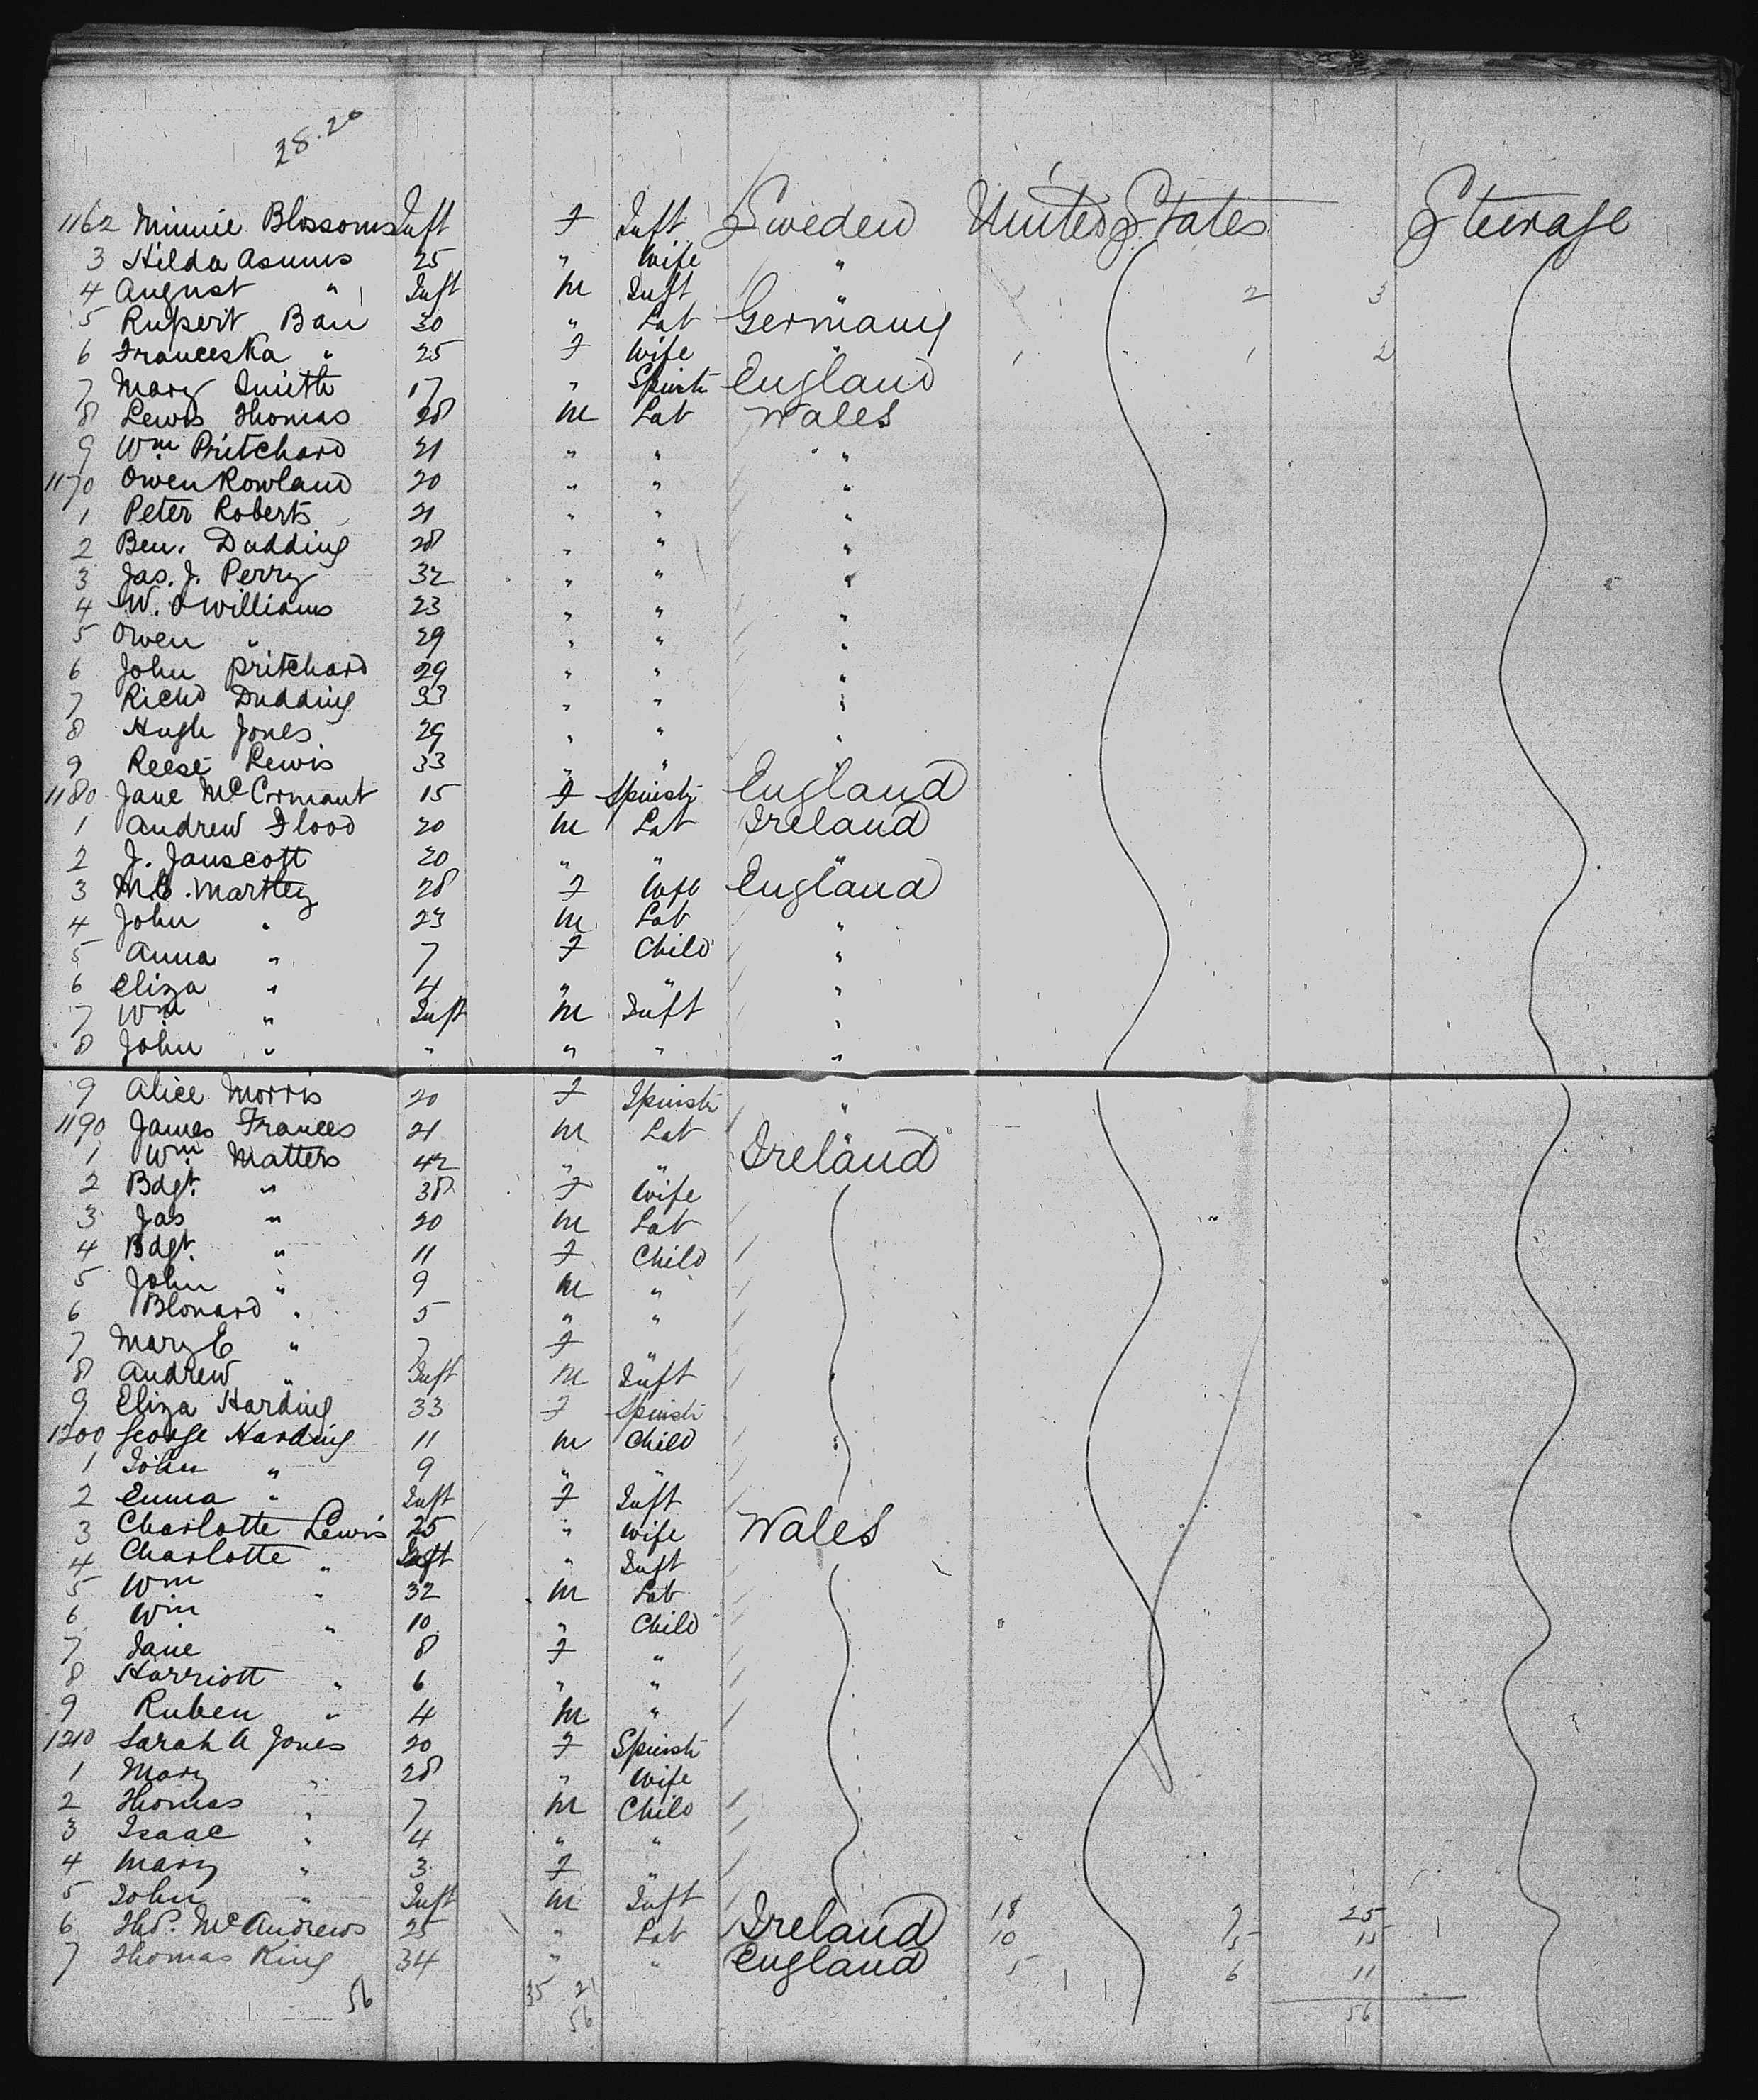 28.20
1162 Minnie Blossoms Inft F Inft Sweden United States Steerage
3 Hilda Asmus 25 " Wife "
4 August " Inft M Inft " 2 3
5 Rupert Bau 30 " Lab Germany
6 Franceska " 25 F Wife " 1 1 2
7 Mary Smith 17 " Spinstr England
8 Lewis Thomas 28 M Lab Wales
9 Wm Pritchard 21 " " "
1170 Owen Rowland 20 " " "
1 Peter Roberts 21 " " "
2 Ben. Dudding 28 " " "
3 Jas. J. Perry 32 " " "
4 W. O Williams 23 " " "
5 Owen " 29 " " "
6 John Pritchard 29 " " "
7 Richd Dudding 33 " " "
8 Hugh Jones 29 " " "
9 Reese Lewis 33 " " "
1180 Jane McCormant 15 F Spinstr England
1 Andrew Flood 20 M Lab Ireland
2 J. Janscott 20 " " "
3 M.E. Martley 28 F Wife England
4 John " 23 M Lab "
5 Anna " 7 F Child "
6 Eliza " 4 " " "
7 Wm " Inft M Inft "
8 John " " " " "
9 Alice Morris 20 F Spinstr "
1190 James Frances 21 M Lab "
1 Wm Matters 42 " " Ireland
2 Bdgt. " 38 F Wife
3 Jas " 20 M Lab
4 Bdgt. " 11 F Child
5 John " 9 M "
6 Blonard " 5 " "
7 Mary E " 7 F "
8 Andrew " Inft M Inft
9 Eliza Harding 33 F Spinstr
1200 George Harding 11 M Child
1 John " 9 " "
2 Emma " Inft F Inft
3 Charlotte Lewis 25 " Wife Wales
4 Charlotte " Inft " Inft
5 Wm " 32 M Lab
6 Wm " 10 " Child
7 Jane 8 F "
8 Harriott " 6 " "
9 Ruben " 4 M "
1210 Sarah A Jones 20 F Spinstr
1 Mary " 28 " Wife
2 Thomas " 7 M Child
3 Isaac " 4 " "
4 Mary " 3 F "
5 John " Inft M Inft
6 Thos. McAndrews 25 " Lab Ireland 18 7 25
7 Thomas King 34 " " England 10 5 15
5 6 11
56 35 21 56
56